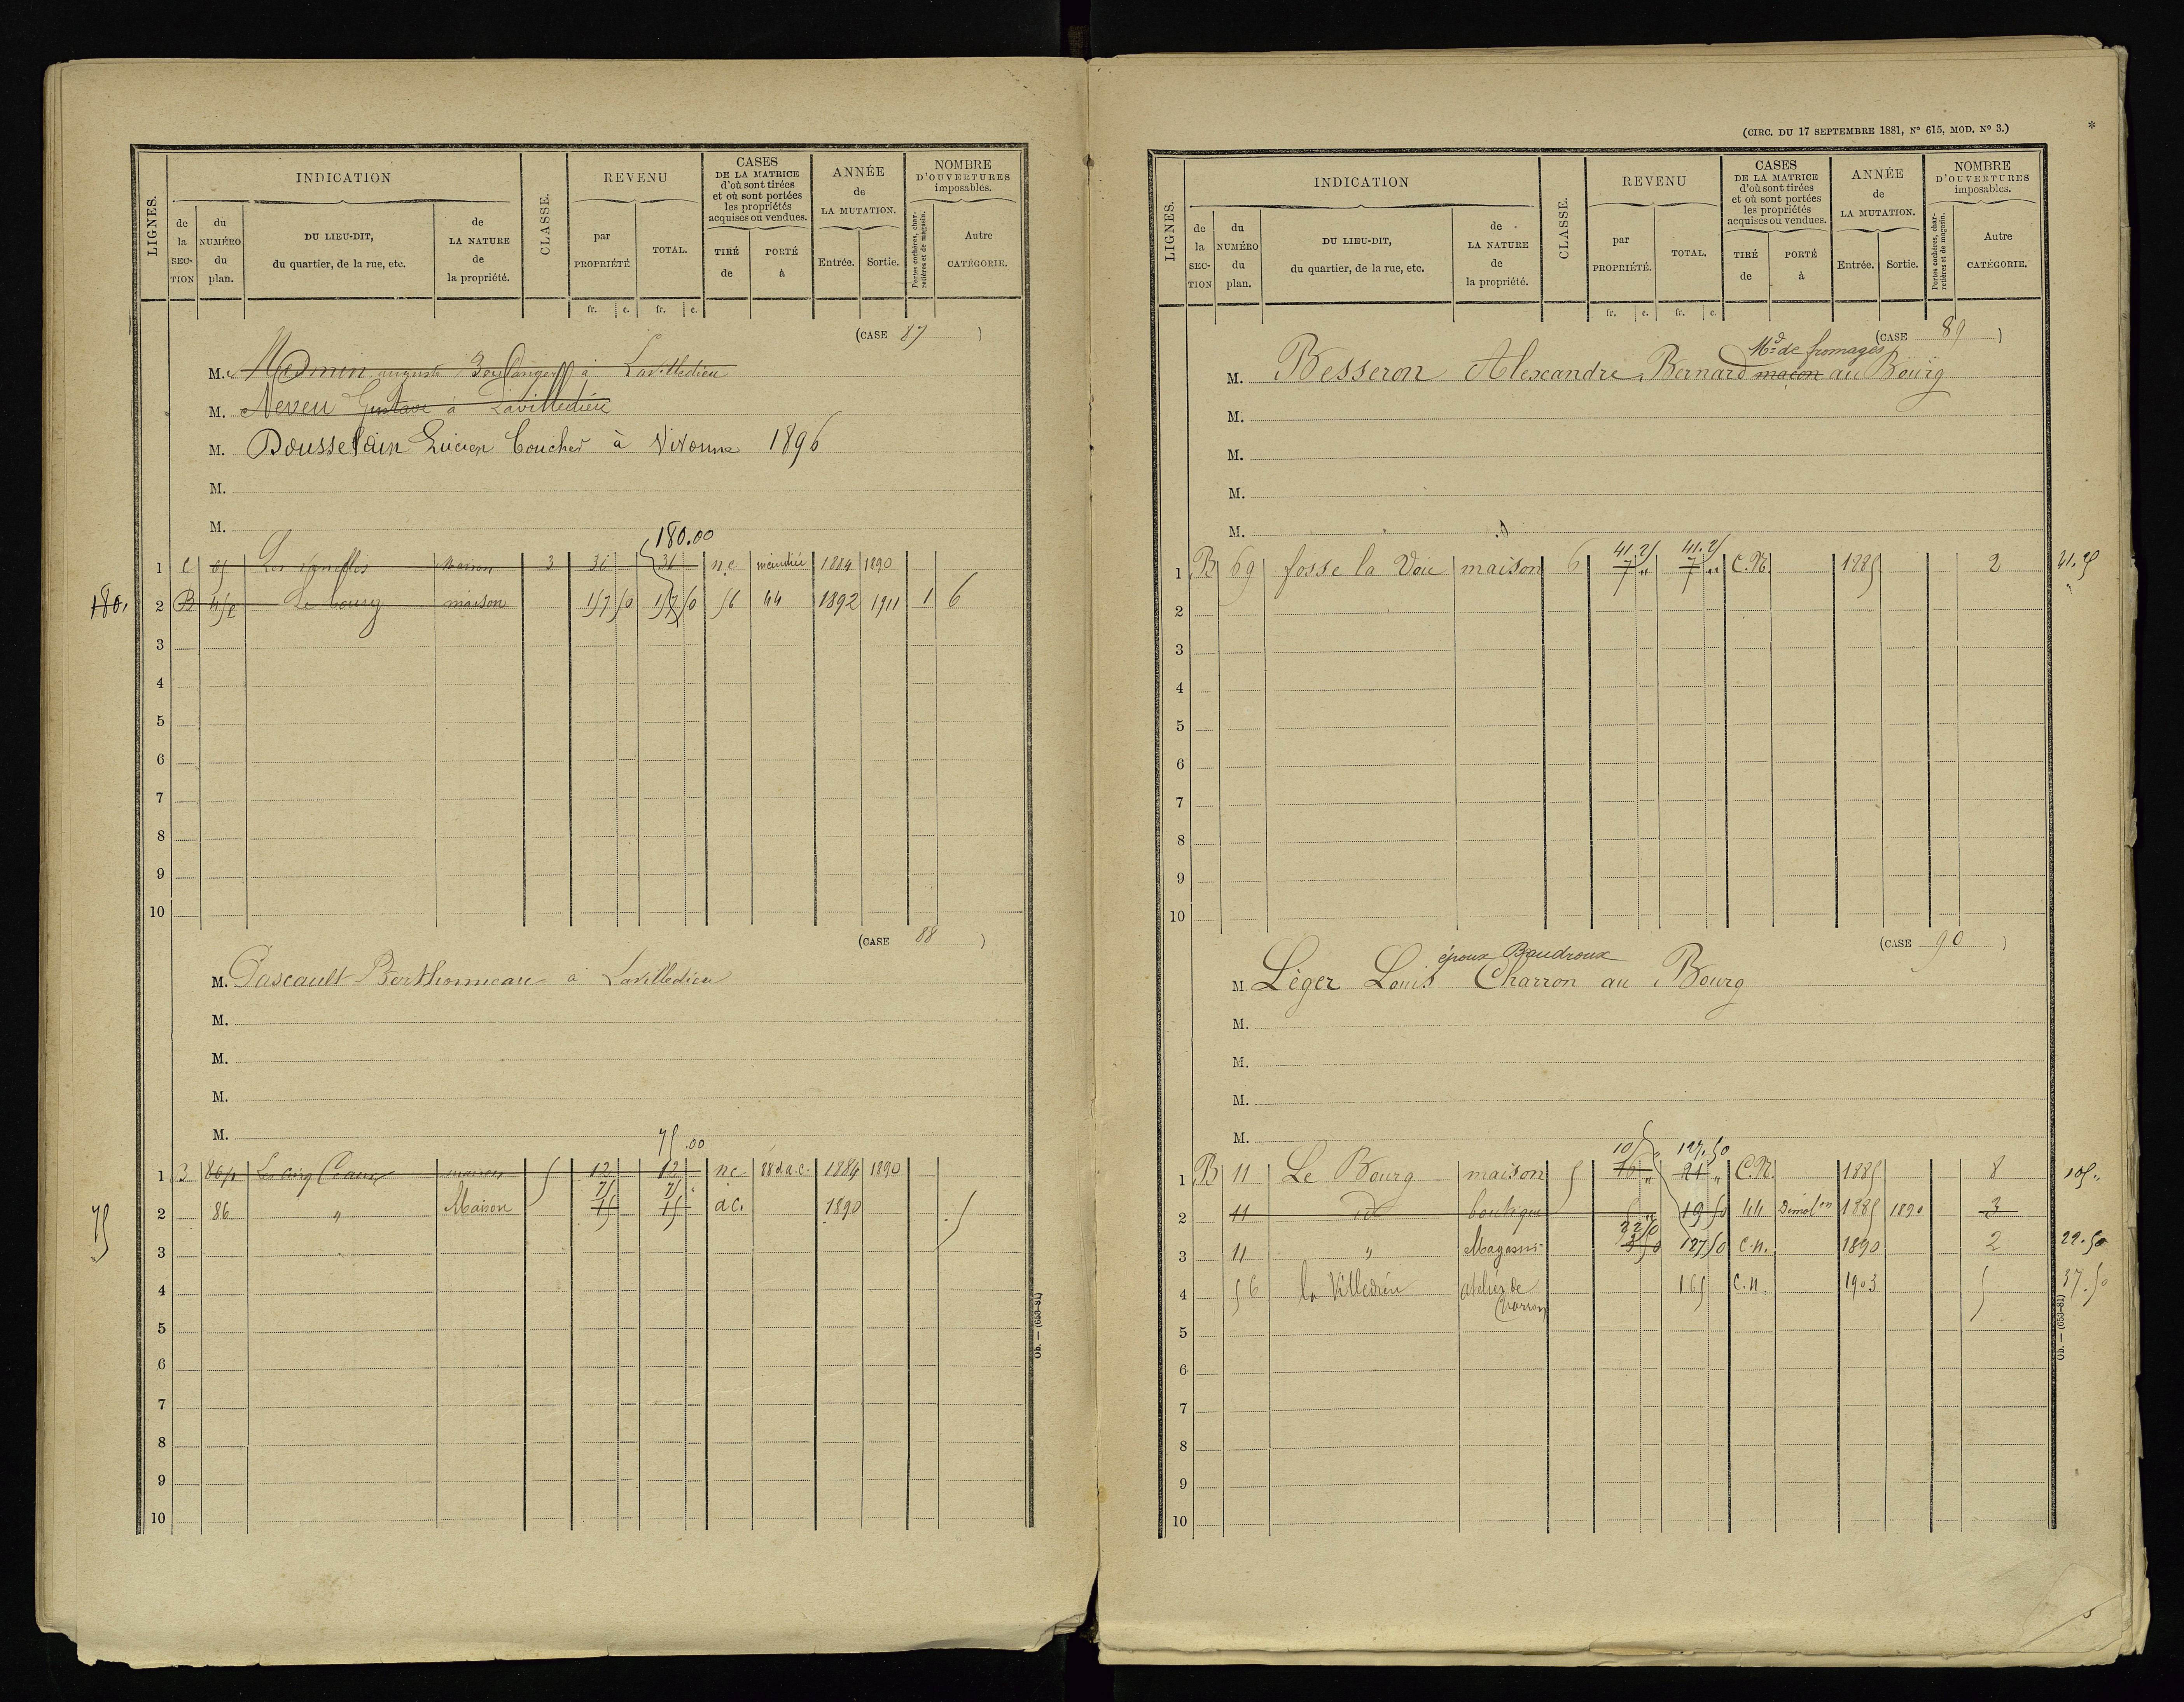 LIGNES.
INDICATION
de la SECTION
du NUMÉRO du plan.
DU LIEU-DIT, du quartier, de la rue, etc.
de LA NATURE de la propriété.
CLASSE.
REVENU
par PROPRIÉTÉ
TOTAL.
fr. c. fr. c.
CASES DE LA MATRICE d'où sont tirées et où sont portées les propriétés acquises ou vendues.
TIRÉ de
PORTÉ à
ANNÉE de LA MUTATION.
Entrée. Sortie.
NOMBRE D'OUVERTURES imposables.
Portes cochères, charretières et de magasin.
Autre CATÉGORIE.
(CASE 87 )
M. auguste Boulanger à Lavilledieu
M. Neveu Gustave à Lavilledieu
M. Lucien Boucher à Vivonne 1896
M.
M.
180.00
1 Maison 3 36 36 n.c 1884 1890
180. 2 B Le bourg maison 157 50 157 50 56 44 1892 1911 1 6
3
4
5
6
7
8
9
10
(CASE 88 )
M. Pascault à Lavilledieu
M.
M.
M.
M.
75.00
1 maison 5 12 12 n.c 88 d.a.c. 1884 1890
75 75
75 2 86 " Maison 15 15 d.c. 1890 5
3
4
5
6
7
8
9
10
Ob. — (653-81)
(CIRC. DU 17 SEPTEMBRE 1881, N° 615, MOD. N° 3.)
*
LIGNES.
INDICATION
de la SECTION
du NUMÉRO du plan.
DU LIEU-DIT, du quartier, de la rue, etc.
de LA NATURE de la propriété.
CLASSE.
REVENU
par PROPRIÉTÉ.
TOTAL.
fr. c. fr. c.
CASES DE LA MATRICE d'où sont tirées et où sont portées les propriétés acquises ou vendues.
TIRÉ de
PORTÉ à
ANNÉE de LA MUTATION.
Entrée. Sortie.
NOMBRE D'OUVERTURES imposables.
Portes cochères, charretières et de magasin.
Autre CATÉGORIE.
(CASE 89 )
Md de fromages
M. Besseron Alexandre Bernard maçon au Bourg
M.
M.
M.
M.
41.25 41.25
1 B 69 fosse la Voie maison 6 7 " 7 " C.N. 1885 2 41.25
2
3
4
5
6
7
8
9
10
(CASE 90 )
époux Baudroux
M. Léger Louis Charron au Bourg
M.
M.
M.
M.
105 127.50
1 B 11 Le Bourg maison 5 " 21 " C.N. 1885 8 105 "
2 11 id boutique 6 " 19 50 44 Démolon 1885 1890 3
22 50
3 11 " Magasin 127 50 C.N. 1890 2 22.50
4 56 la Villedieu atelier de Charron 165 C.N. 1903 5 37.50
5
6
7
8
9
10
Ob. — (653-81)